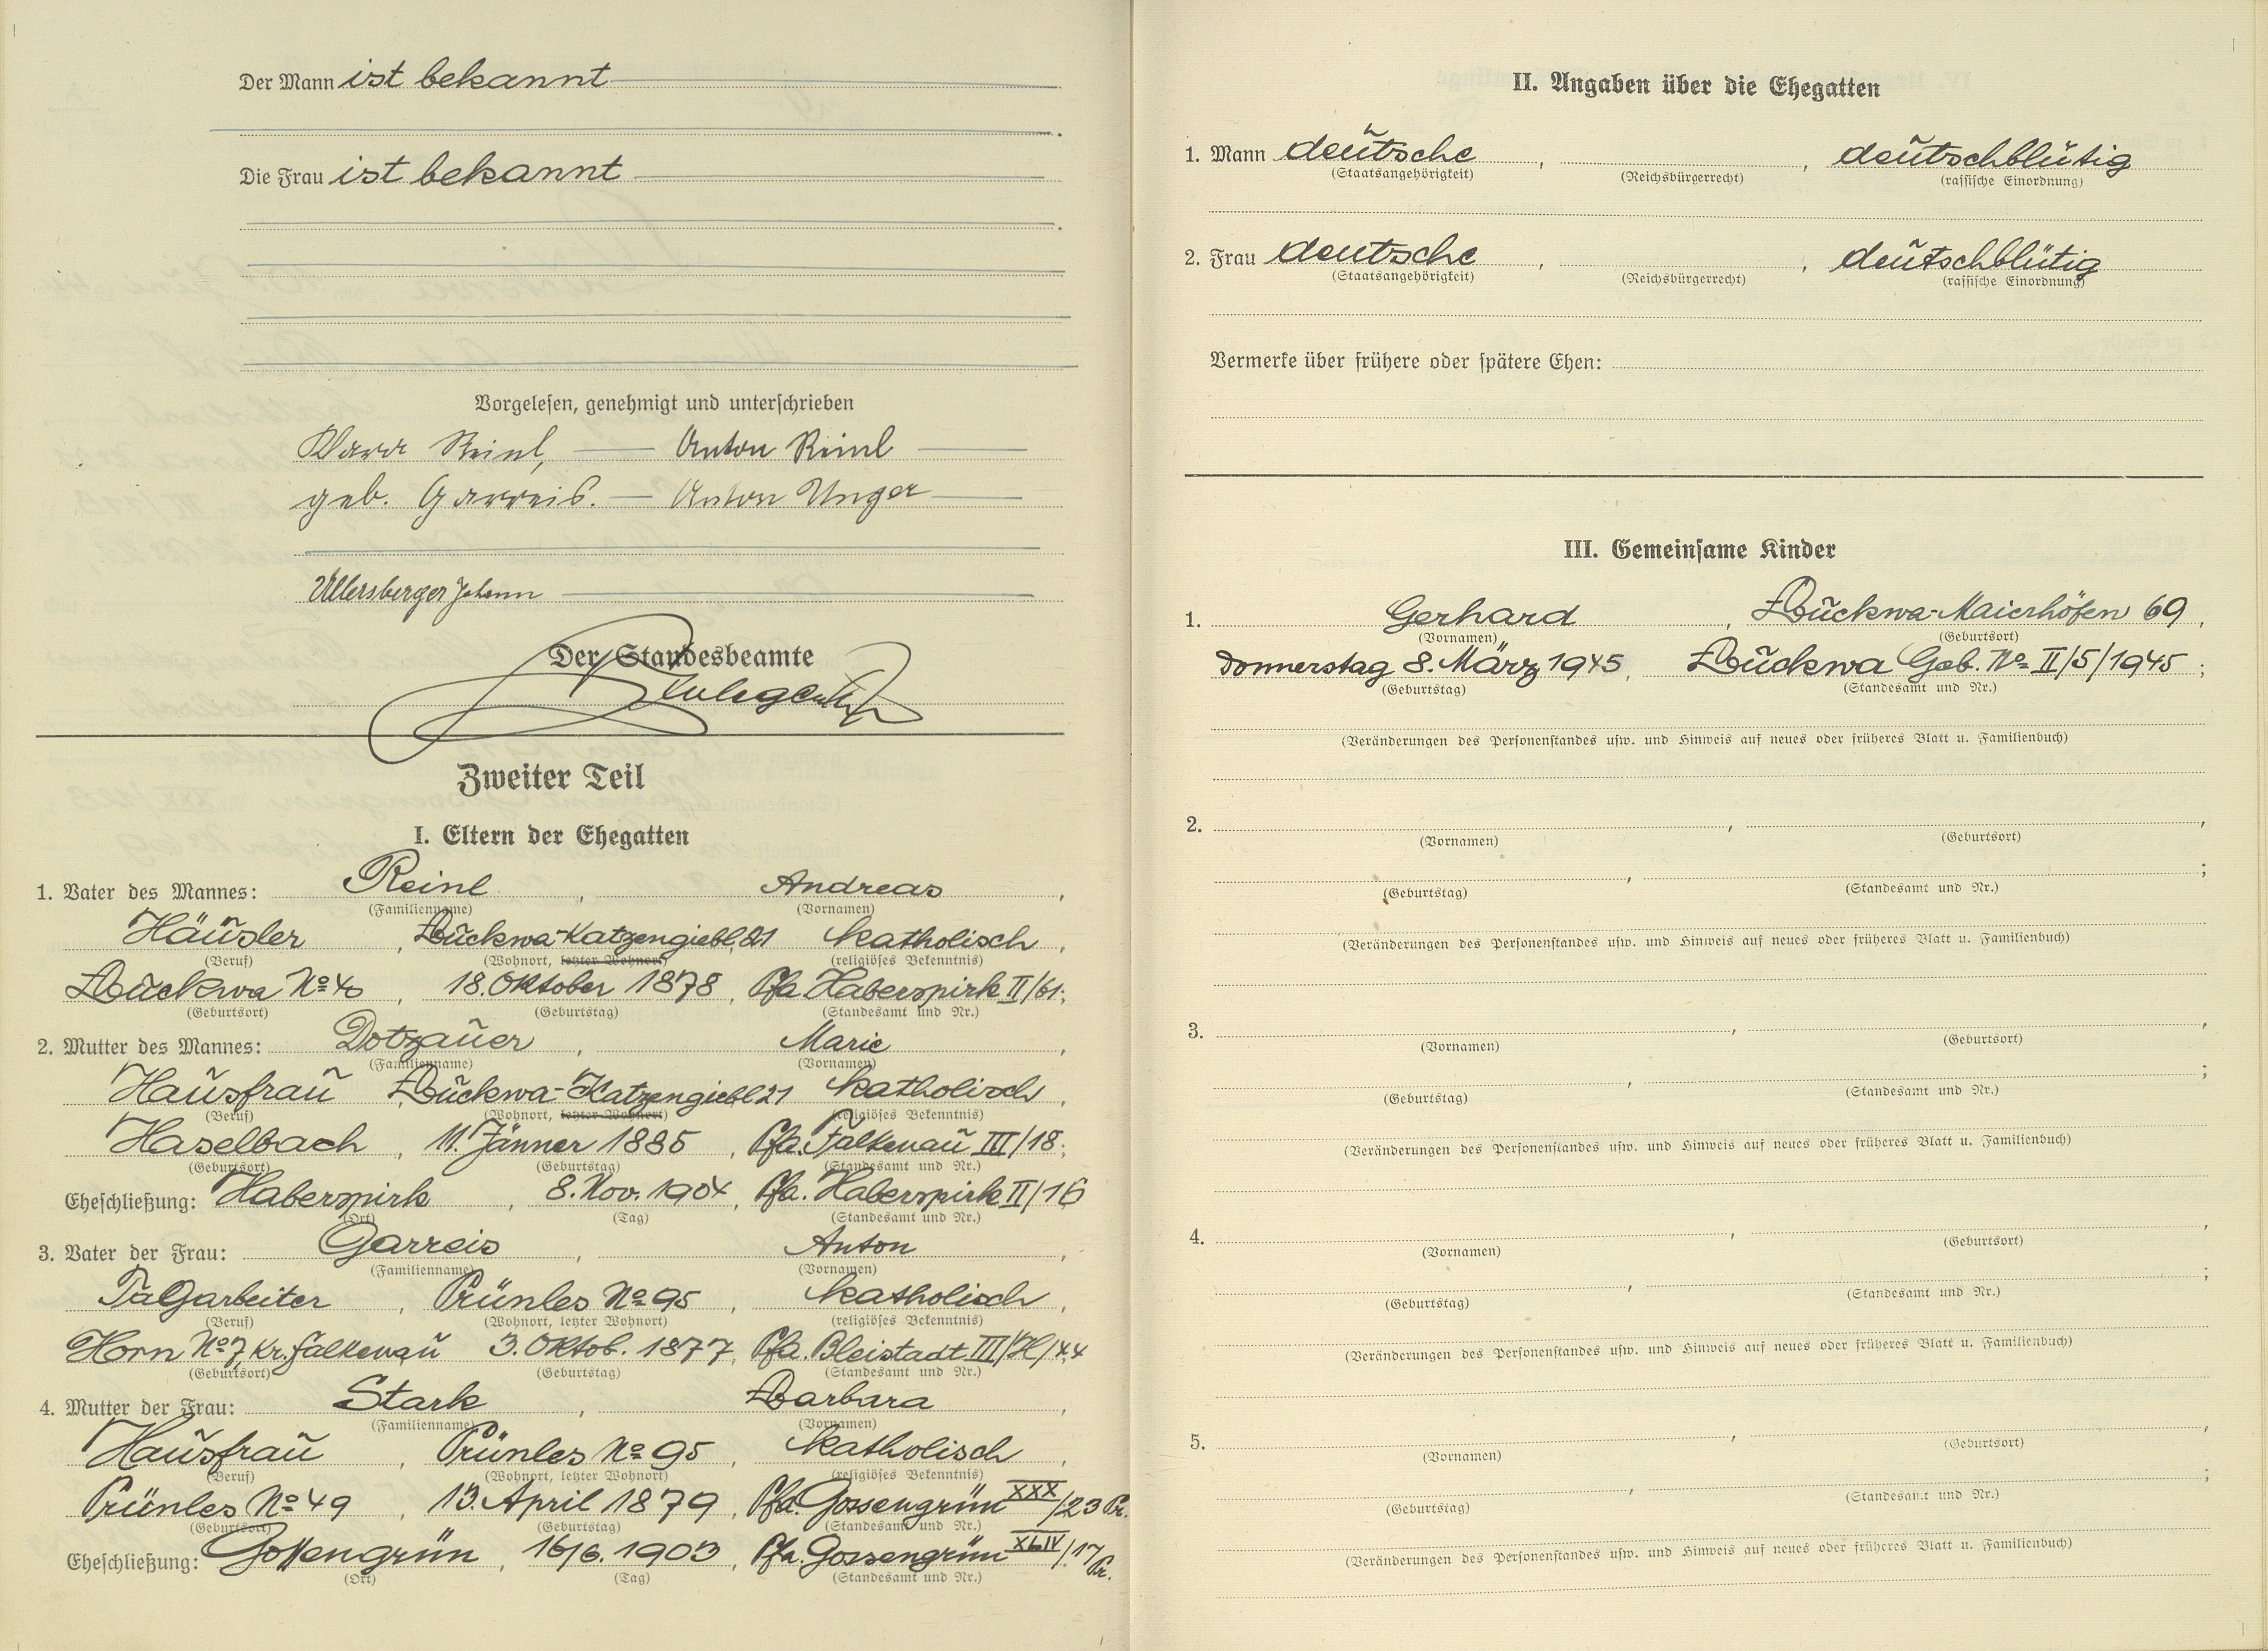 Der Mann ist bekannt
Die Frau ist bekannt
Vorgelesen, genehmigt und unterschrieben
Klara Reinl, Anton Reinl
geb. Garreis. Anton Unger
Ullersberger Johann
Der Standesbeamte
Zweiter Teil
I. Eltern der Ehegatten
1. Vater des Mannes: Reinl, Andreas,
(Familienname) (Vornamen)
Häusler, Buckwa-Katzengiebl, 21 katholisch,
(Beruf) (Wohnort, letzter Wohnort) (religiöses Bekenntnis)
Buckwa No 40, 18. Oktober 1878, Pfa Haberspirk II/61;
(Geburtsort) (Geburtstag) (Standesamt und Nr.)
2. Mutter des Mannes: Dotzauer, Marie,
(Familienname) (Vornamen)
Hausfrau, Buckwa-Katzengiebl 21 katholisch,
(Beruf) (Wohnort, letzter Wohnort) (religiöses Bekenntnis)
Haselbach, 11. Jänner 1885, Pfa. Falkenau III/18;
(Geburtsort) (Geburtstag) (Standesamt und Nr.)
Eheschließung: Haberspirk, 8. Nov. 1904, Pfa. Haberspirk II/16
(Ort) (Tag) (Standesamt und Nr.)
3. Vater der Frau: Garreis, Anton,
(Familienname) (Vornamen)
Tagarbeiter, Prünles No 95, katholisch,
(Beruf) (Wohnort, letzter Wohnort) (religiöses Bekenntnis)
Horn No 7, Kr. Falkenau 3. Oktob. 1877, Pfa. Bleistadt III/H/44
(Geburtsort) (Geburtstag) (Standesamt und Nr.)
4. Mutter der Frau: Stark, Barbara,
(Familienname) (Vornamen)
Hausfrau, Prünles No 95, katholisch,
(Beruf) (Wohnort, letzter Wohnort) (religiöses Bekenntnis)
Prünles No 49, 13. April 1879, Pfa. Gossengrün XXX/23 Pr.
(Geburtsort) (Geburtstag) (Standesamt und Nr.)
Eheschließung: Gossengrün, 16/6. 1903, Pfa. Gossengrün XLIV/17 Pr.
(Ort) (Tag) (Standesamt und Nr.)
II. Angaben über die Ehegatten
1. Mann deutsche, , deutschblütig
(Staatsangehörigkeit) (Reichsbürgerrecht) (rassische Einordnung)
2. Frau deutsche, , deutschblütig
(Staatsangehörigkeit) (Reichsbürgerrecht) (rassische Einordnung)
Vermerke über frühere oder spätere Ehen:
III. Gemeinsame Kinder
1. Gerhard, Buckwa-Maierhöfen 69,
(Vornamen) (Geburtsort)
Donnerstag 8. März 1945, Buckwa Geb. No II/5/1945;
(Geburtstag) (Standesamt und Nr.)
(Veränderungen des Personenstandes usw. und Hinweis auf neues oder früheres Blatt u. Familienbuch)
2. , ,
(Vornamen) (Geburtsort)
, ;
(Geburtstag) (Standesamt und Nr.)
(Veränderungen des Personenstandes usw. und Hinweis auf neues oder früheres Blatt u. Familienbuch)
3. , ,
(Vornamen) (Geburtsort)
, ;
(Geburtstag) (Standesamt und Nr.)
(Veränderungen des Personenstandes usw. und Hinweis auf neues oder früheres Blatt u. Familienbuch)
4. , ,
(Vornamen) (Geburtsort)
, ;
(Geburtstag) (Standesamt und Nr.)
(Veränderungen des Personenstandes usw. und Hinweis auf neues oder früheres Blatt u. Familienbuch)
5. , ,
(Vornamen) (Geburtsort)
, ;
(Geburtstag) (Standesamt und Nr.)
(Veränderungen des Personenstandes usw. und Hinweis auf neues oder früheres Blatt u. Familienbuch)